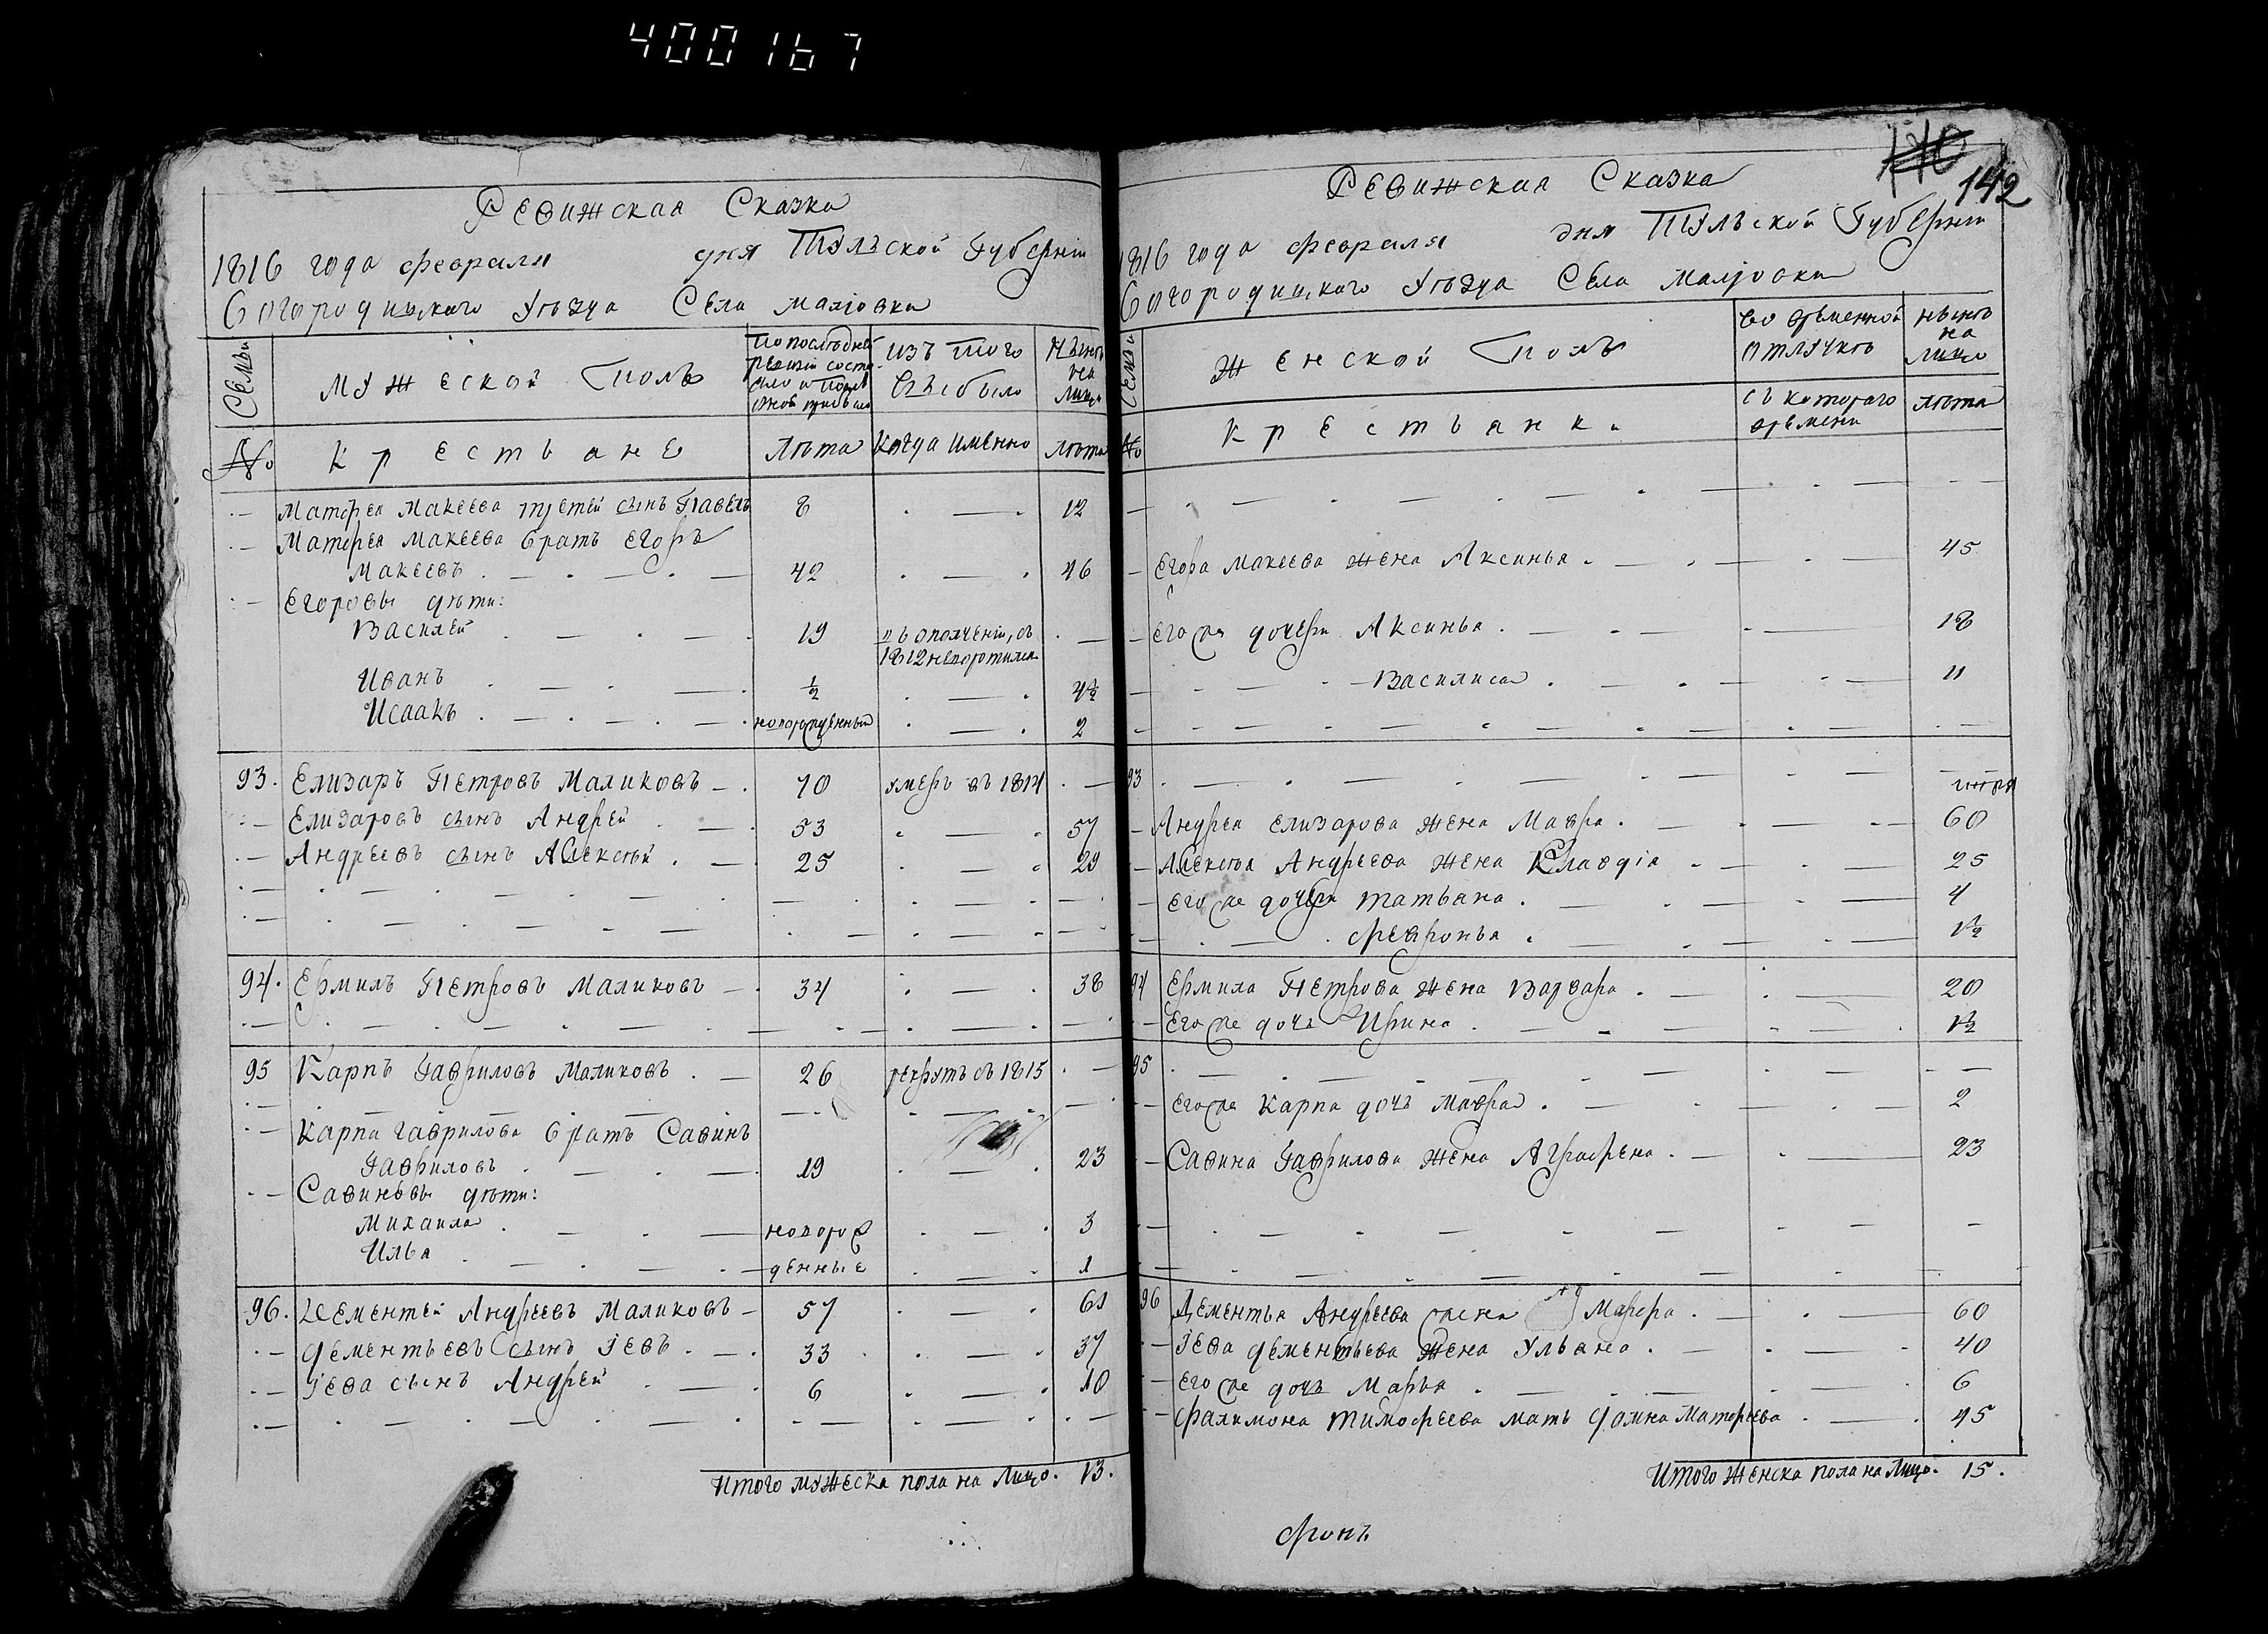 400167
Ревижская Сказка
1816 года февраля дня Тульской Губерніи
Богородицкаго Уѣзда Села Маліовки
Семьи
Мужеской полъ
По последней ревизіи состояло и после оной прибыло
изъ того выбыло
Нынѣ на лицо
№
Крестьяне
лѣта
когда именно
лѣта
Матфея Макеева третей сынъ Павелъ 8 12
Матфея Макеева братъ Егоръ
Макеевъ 42 46
Егоровы дѣти:
Василей 19 въ ополченіи, съ
1812 неворотился
Иванъ ½ 4½
Исаакъ новорожденный 2
93. Елизаръ Петровъ Маликовъ 70 умеръ въ 1814
Елизаровъ сынъ Андрей 53 57
Андреевъ сынъ Алексѣй 25 29
94. Ермилъ Петровъ Маликовъ 34 38
95 Карпъ Гавриловъ Маликовъ 26 рекрутъ съ 1815
Карпа Гаврилова братъ Савинъ
Гавриловъ 19 23
Савиновы дѣти:
Михаила новорож 3
Илья денные 1
96. Дементей Андреевъ Маликовъ 57 61
Дементьевъ сынъ Іевъ 33 37
Іева сынъ Андрей 6 10
Итого мужеска пола на Лицо. 13.
140
142
Ревижская Сказка
1816 года февраля дня Тульской Губерніи
Богородицкаго Уѣзда Села Маліовки
Семьи
Женской полъ
во временной отлучкѣ
нынѣ на лицо
№
Крестьянки
съ котораго времени
лѣта
Егора Макеева жена Аксинья 45
Его же дочери Аксинья 18
Василиса 11
93
Андрея Елизарова жена Мавра 60
Алексѣя Андреева жена Клавдія 25
Его же дочери Татьяна 4
Февронья 1½
94 Ермила Петрова жена Варвара 20
Его же дочь Ирина 1½
95
Его же Карпа дочь Мавра 2
Савина Гаврилова жена Аграфена 23
96 Дементья Андреева жена Марфа 60
Іева Дементьева жена Ульяна 40
Его же дочь Марья 6
Филимона Тимофеева мать Домна Матфеева 45
Итого Женска пола на Лицо. 15.